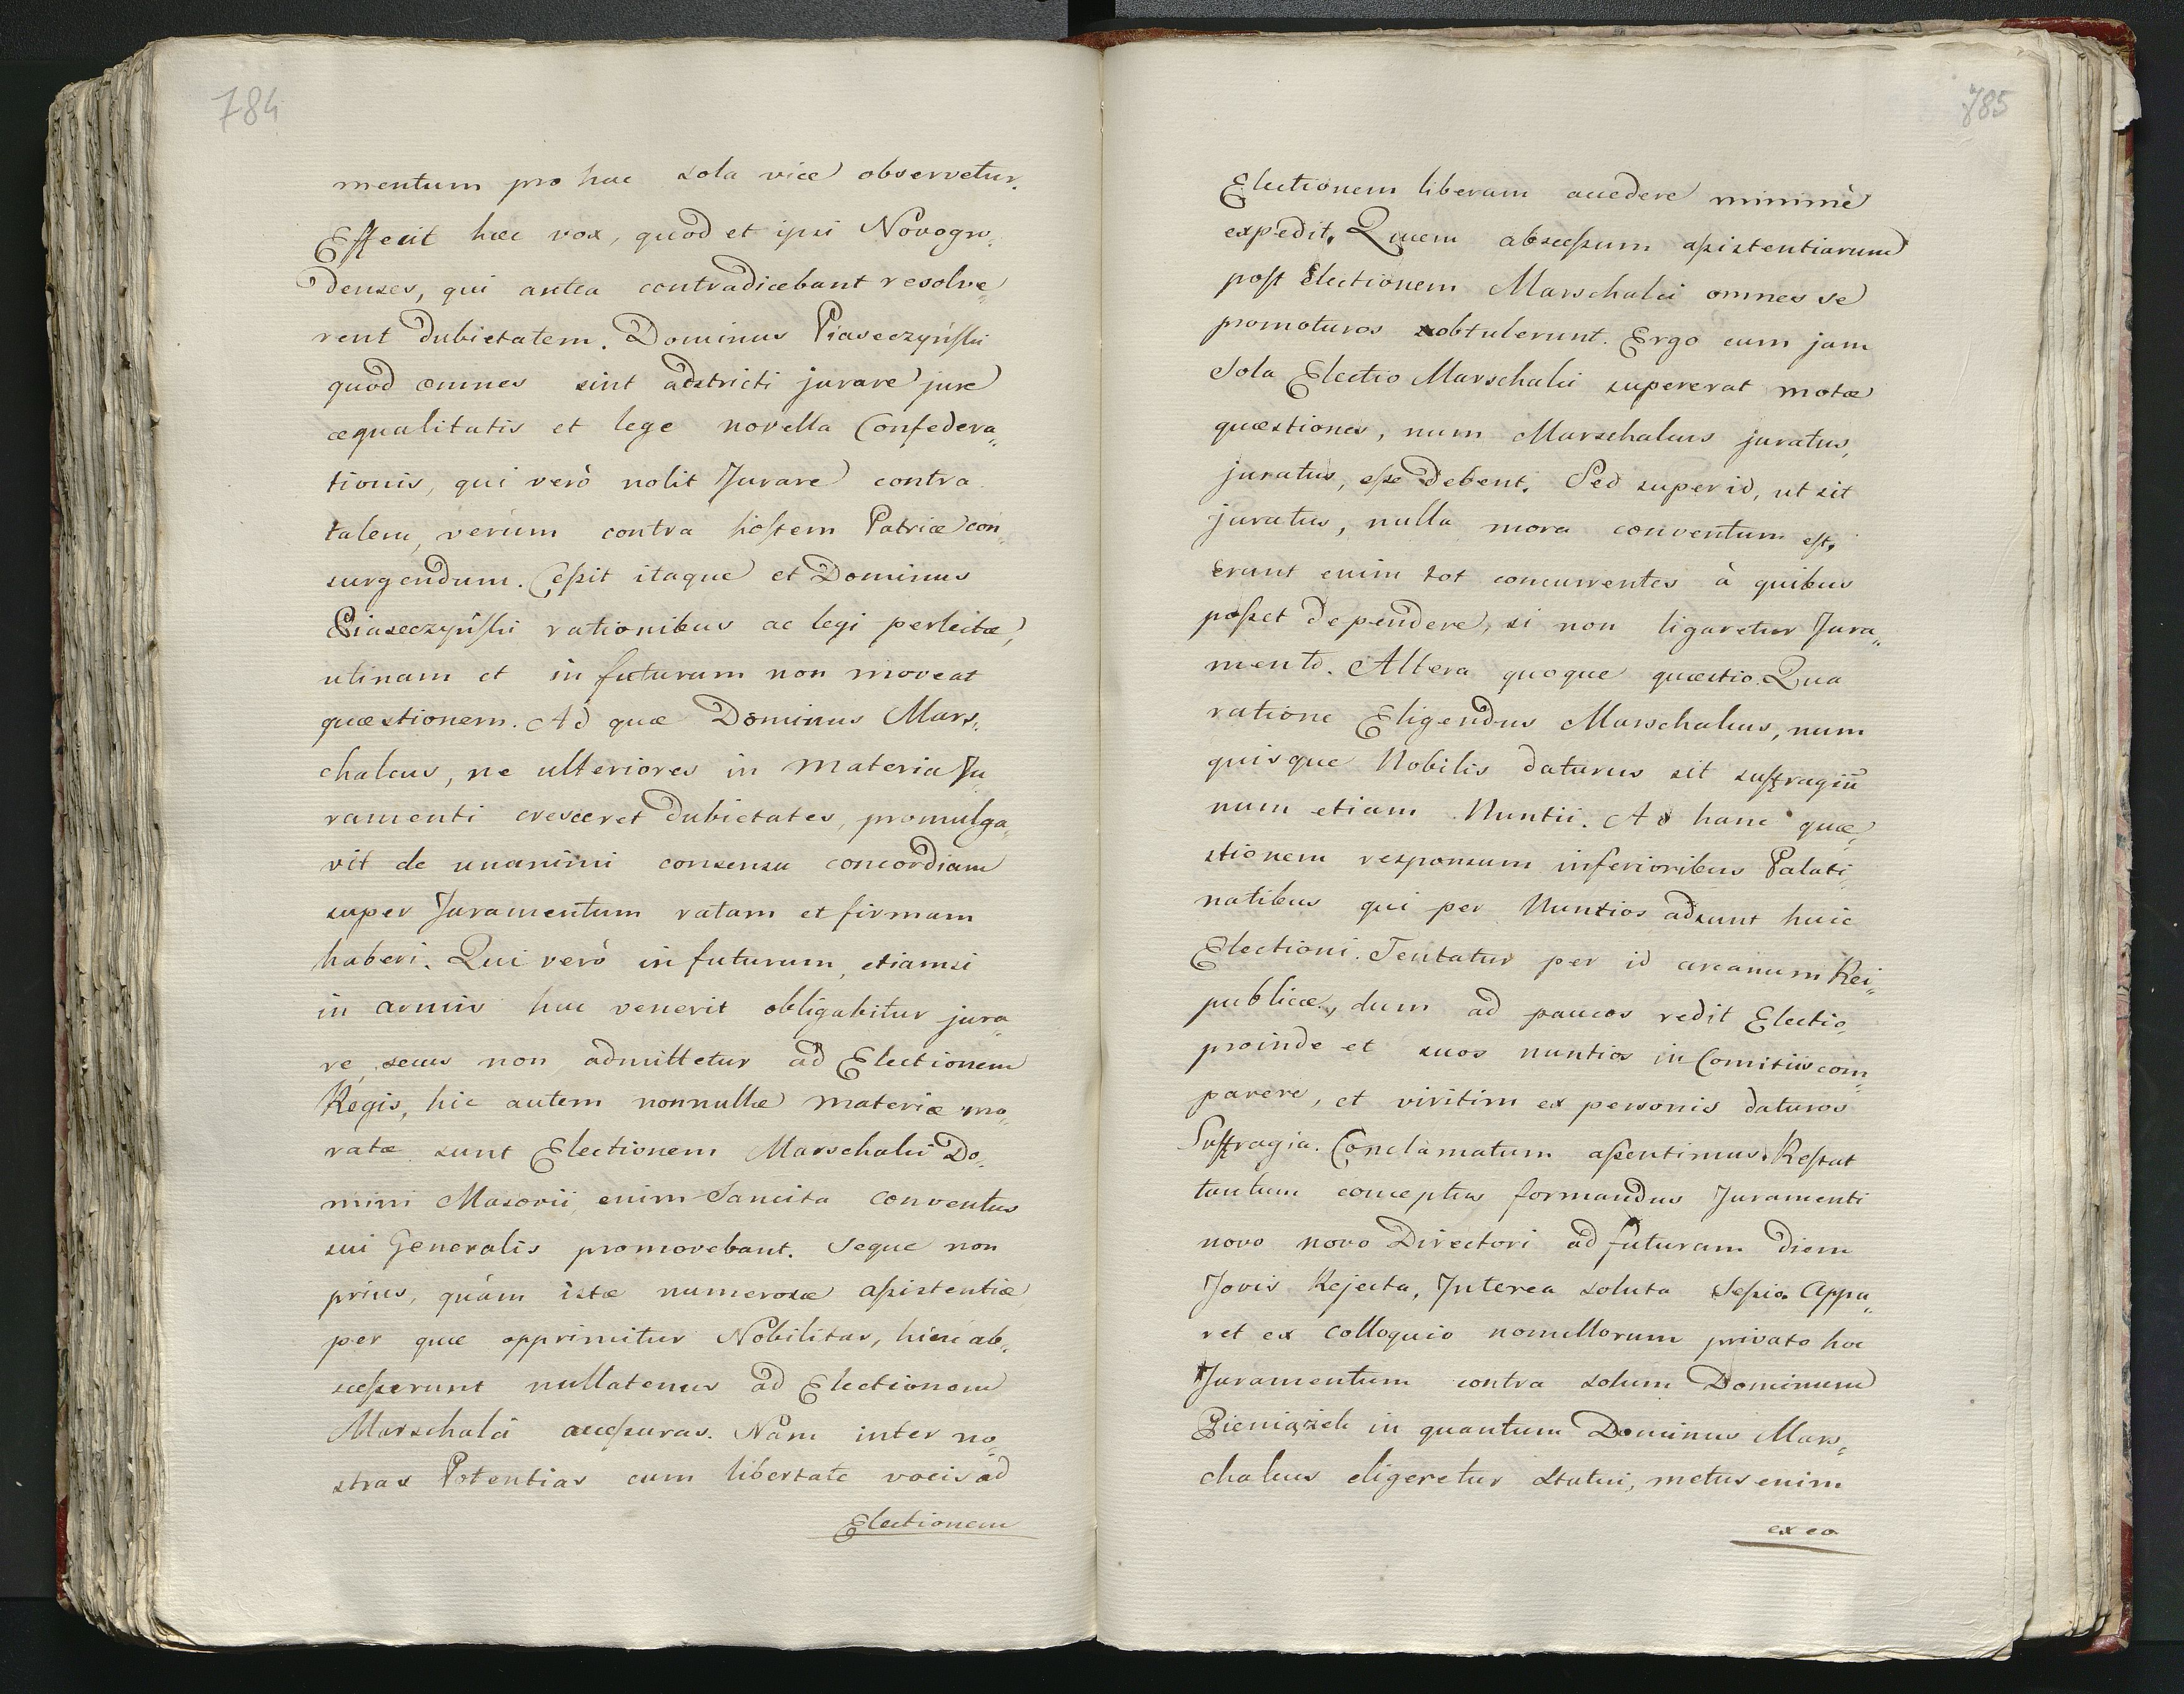 784
mentum pro hac sola vice observetur.
Effecit haec vox, quod et ipsi Novogro„
denses, qui antea contradicebant resolve„
rent dubietatem. Dominus Piaseczyński
quod omnes sint adstricti jurare jure
æqualitatis et lege novella Confedera„
tionis, qui verò nolit Jurare contra
talem, verùm contra hostem Patriæ con„
surgendum. Cessit itaque et Dominus
Piaseczyński rationibus ac legi perlectæ,
utinam et in futurum non moveat
quæstionem. Ad quæ Dominus Mars„
chalcus, ne ulteriores in materia Ju„
ramenti cresceret dubietates, promulga„
vit de unanimi consensu concordiam
super Juramentum ratam et firmam
haberi. Qui verò in futurum, etiamsi
in armis huc venerit obligabitur jura„
re, secus non admittetur ad Electionem
Regis, hic autem nonnullæ materiæ mo„
ratæ sunt Electionem Marschalci Do„
mini Masovii, enim Sancita conventus
sui Generalis promovebant. Seque non
prius, quàm istæ numerosæ assistentiæ
per quæ opprimitur Nobilitas, hinc ab„
scesserunt nullatenus ad Electionem
Marschalci accessuros. Nam inter no„
stras Potentias cum libertate vocis ad
Electionem
785
Electionem liberam accedere minimè
expedit. Quem abscessum assistentiarum
post Electionem Marschalci omnes se
promoturos obtulerunt. Ergo cum jam
Sola Electio Marschalci supererat motæ
quæstiones, num Marschalcus juratus,
juratus, esse debent. Sed super id, ut sit
juratus, nulla mora conventum est.
erant enim tot concurrentes à quibus
posset dependere, si non ligaretur Jura„
mento. Altera quoque quæstio. Qua
ratione Eligendus Marschalcus, num
quisque Nobilis daturus sit suffragiū
num etiam Nuntii. Ad hanc quæ„
stionem responsum inferioribus Palati„
natibus qui per Nuntios adsunt huic
Electioni. Tentatur per id arcanum Rei„
publicæ, dum ad paucos redit Electio„
proinde et suos nuntios in Comitiis com„
parere, et viritim ex personis daturos
Suffragia. Conclamatum assentimus. Restat
tantum conceptus formandus Juramenti
novo novo Directori ad futuram diem
Jovis Rejecta, Interea soluta Sessio. Appa„
ret ex colloquio nonnullorum privato hoc
Juramentum contra solum Dominum
Pieniążek in quantum Dominus Mars„
chalcus eligeretur statui, metus enim
ex eo